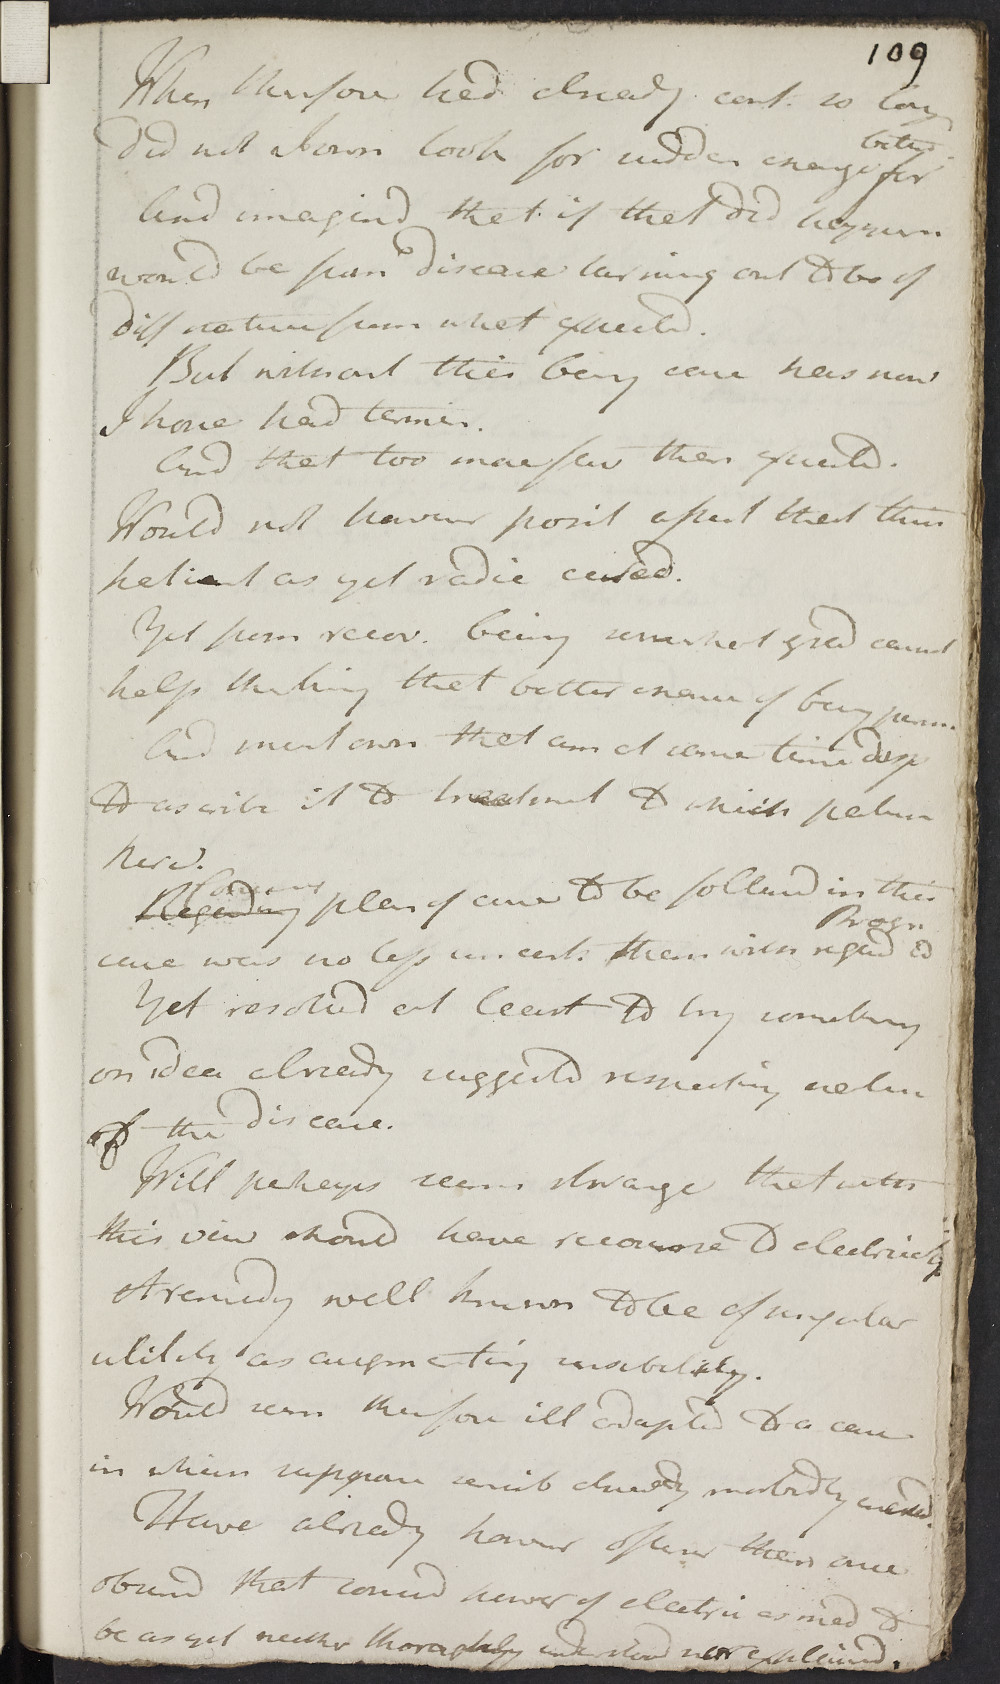 109
When therefore had already cont. so long
did not I own look for sudden change for
better
And imagind that if that did happen
would be from disease turning out to be of
diff nature from what expected.
But without this being case has now
I hope had termin.
And that too more fav than expected.
Would not however posit assert that this
patient as yet radic cured.
Yet from recov. being somewhat grad cannot
help thinking that better chance of being perm.
And must own that am at same time disp
to ascribe it to treatment to which
here.
Regarding plan of cure to be followd in this
Concerng
case was no less uncert. than with regard to
Progn
Yet resolved at least to try something
on idea already suggested respecting nature
of the disease.
Will perhaps seem strange that with
this view should have recourse to electricity
A remedy well known to be of singular
utility as augmenting sensibility.
Would seem therefore ill adapted to a case
in which suppose sensib already morbidly increasd.
Have already however oftener than once
observd that conceived power of electric as med to
be as yet neither thoroughly understood nor explained.